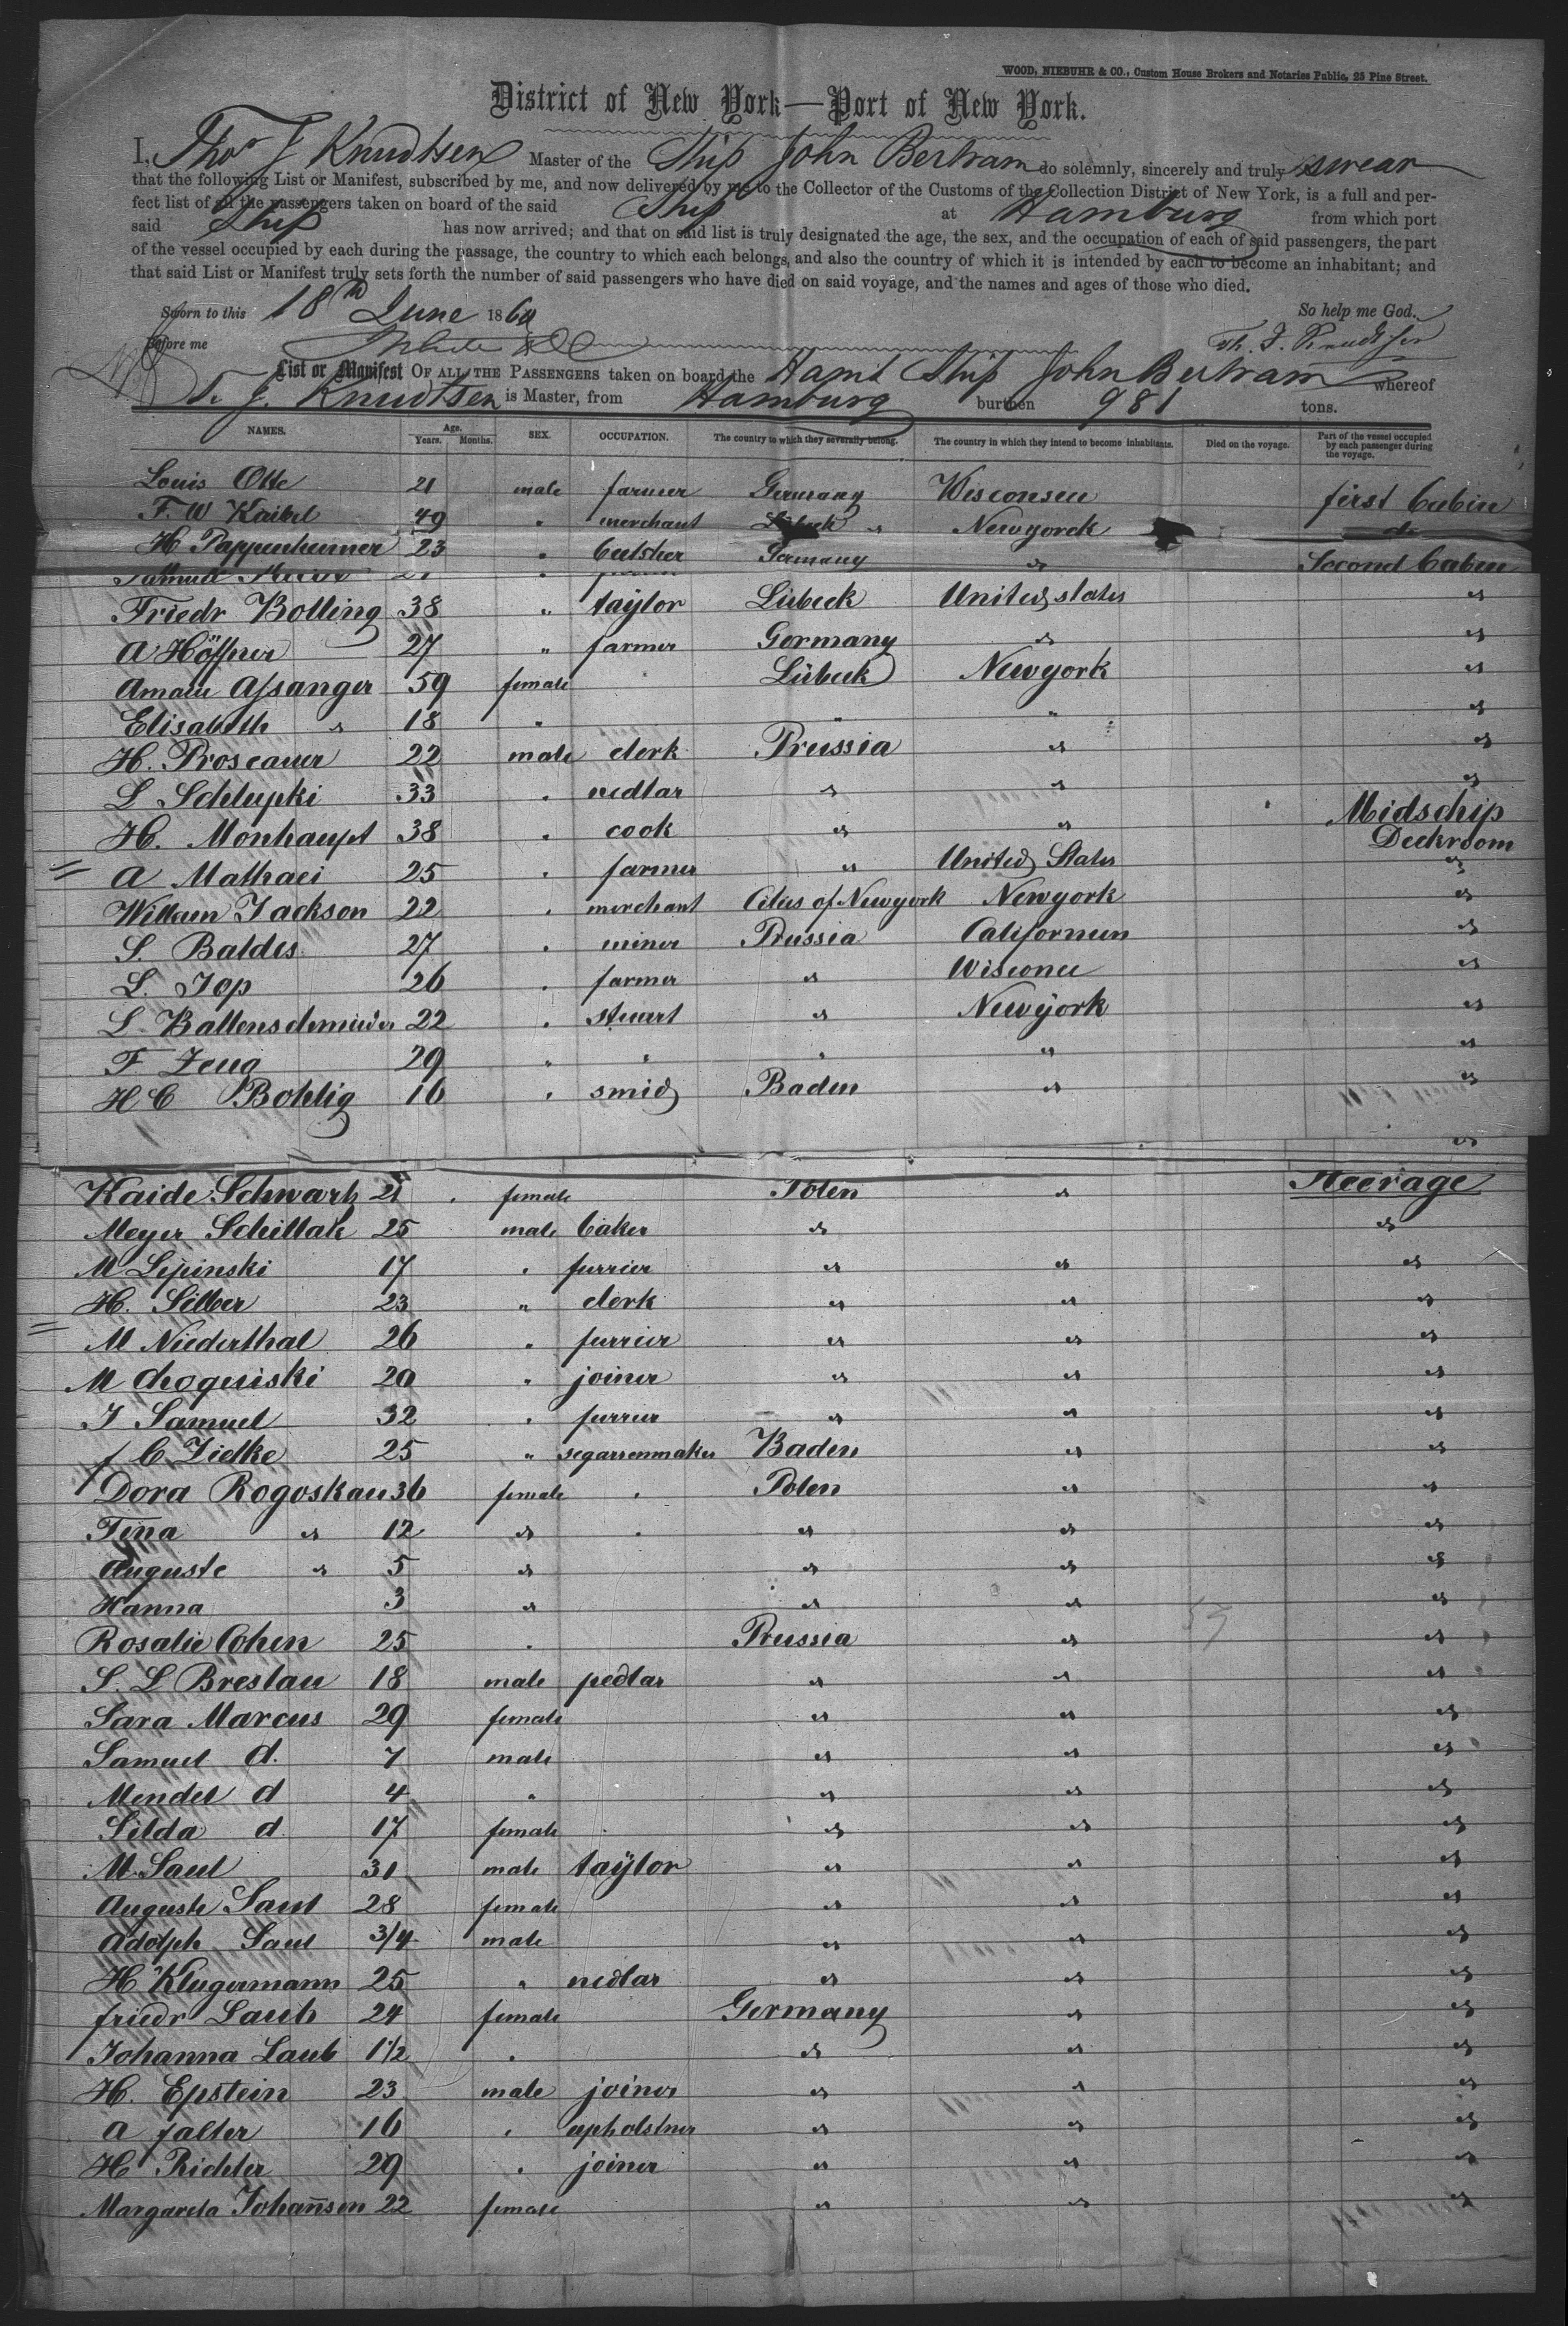 WOOD, NIEBUHR & CO., Custom House Brokers and Notaries Public, 25 Pine Street.
District of New York—Port of New York.
I, Thos J Knudtsen Master of the Ship John Bertram do solemnly, sincerely and truly swear
that the following List or Manifest, subscribed by me, and now delivered by me to the Collector of the Customs of the Collection District of New York, is a full and per-
fect list of all the passengers taken on board of the said Ship at Hamburg from which port
said Ship has now arrived; and that on said list is truly designated the age, the sex, and the occupation of each of said passengers, the part
of the vessel occupied by each during the passage, the country to which each belongs, and also the country of which it is intended by each to become an inhabitant; and
that said List or Manifest truly sets forth the number of said passengers who have died on said voyage, and the names and ages of those who died.
Sworn to this 18th June 1860 So help me God.
Before me Th. J. Knudtsen
List or Manifest OF ALL THE PASSENGERS taken on board the Ham. Ship John Bertram whereof
T. J. Knudtsen is Master, from Hamburg burthen 981 tons.
NAMES. Age. Years. Months. SEX. OCCUPATION. The country to which they severally belong. The country in which they intend to become inhabitants. Died on the voyage. Part of the vessel occupied by each passenger during the voyage.
Louis Otte 21 male farmer Germany Wisconsen first Cabin
F. W Kaibel 49 " merchant Lübeck " Newyorck do
H Pappenheimer 23 " butsher Germany " Second Cabin
Friedr Bolling 38 " taylor Lübeck United states "
A Höffner 27 " farmer Germany " "
Amalie Assanger 59 female Lübeck Newyork "
Elisabeth " 18 " " " "
H. Proscauer 22 male clerk Prussia " "
L Schlupki 33 " nedlar " " "
H. Monhaupt 38 " cook " " Midschip Deckroom
A Mathaei 25 " farmer " United States "
William Jackson 22 " merchant Cities of Newyork Newyork "
S. Baldes 27 " miner Prussia Californien "
L. Jop 26 " farmer " Wisconci "
L. Ballenschmieder 22 " stuart " Newyork "
F Zeug 29 " " " " "
H C Bohlig 16 " smid Baden " "
"
Kaide Schwarh 21 female Polen " Steerage
Meyer Schillak 25 male baker " "
M Lipinski 17 " furrier " " "
H. Silber 23 " clerk " " "
M Niederthal 26 " furrier " " "
M Choquiski 20 " joiner " " "
J Samuel 32 " furrier " " "
f C Zielke 25 " segarrenmaker Baden " "
Dora Rogoskau 36 female Polen " "
Tina " 12 " " " "
Auguste " 5 " " " "
Hanna 3 " " " "
Rosalie Cohen 25 " Prussia " "
S. L Breslau 18 male pedlar " " "
Sara Marcus 29 female " " "
Samuel d. 7 male " " "
Mendel d 4 " " " "
Silda d 17 female " " "
M. Saul 31 male taÿlor " " "
Auguste Saul 28 female " " "
Adolph Saul 3/4 male " " "
H Klugermann 25 " nedlar " " "
friedr Laub 24 female Germany " "
Johanna Laub 1 1/2 " " " "
H. Epstein 23 male joiner " " "
A falter 16 " upholstner " " "
H Richter 29 " joiner " " "
Margareta Johannsen 22 female " " "